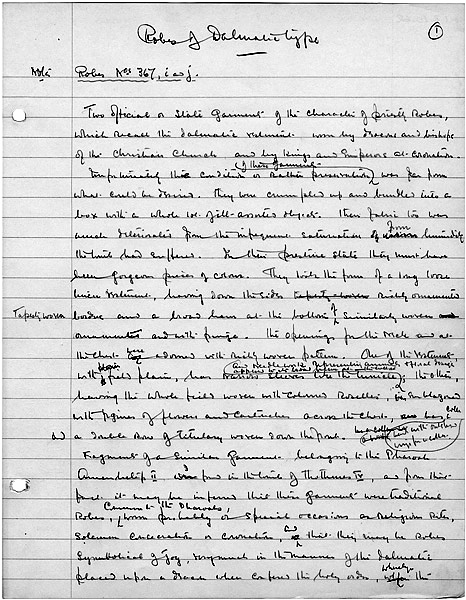 Robes of Dalmatic type
①
Note Robes Nos 367, i and j.
Two official or State Garments of the character of priestly Robes,
which recall the dalmatic vestment worn by deacons and bishops
of the Christian Church and by Kings and Emperors at coronation.
Unfortunately the condition or rather preservation of these garments was far from
what could be desired. They were crumpled up and bundled into a
box with a whole lot of ill-assorted objects. Their fabric too was
much deteriorated from the infrequent saturation from humidity
the tomb had suffered. In their pristine state they must have
been gorgeous pieces of colour. They take the form of a long loose
vestment, having down the sides richly ornamented
Tapestry woven borders and a broad hem at the bottom of similarly woven
ornamentation and with fringe. The openings for the neck and at
the chest adorned with richly woven pattern. One of the Vestments
with field plain, has and needlework sleeves like the tunicle; the other,
having the whole field woven with coloured Rosettes, emblazoned
with figures of flowers and cartouches across the chest, has collar
a double Row of titulary woven down the front.
Fragment of a similar Garment belonging to the Pharaoh
Amenhotep II was found in the tomb of Thothmes IV, and from this
fact it may be inferred that these garments were traditional
Robes, Common to the Pharaohs, worn probably on special occasions as Religious Rites,
Solemn Consecration or coronation, and that they may be Robes
Symbolical of joy, very much in the manner of the dalmatic
placed upon a deacon when conferred the holy order, whereby the